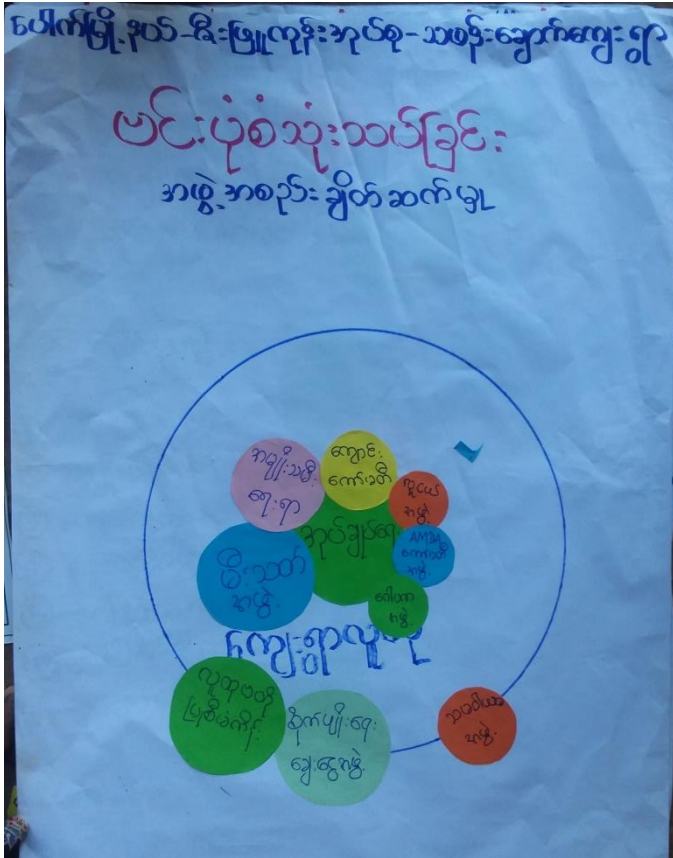 ပေါက်မြို့နယ်-ဇီးဖြူကုန်းအုပ်စု-သဖန်းချောက်ကျေးရွာ
ဗင်းပုံစံသုံးသပ်ခြင်း
အဖွဲ့အစည်းချိတ်ဆက်မှု
အမျိုးသမီး
ရေးရာ
ကျောင်း
ကော်မတီ
လူငယ်
အဖွဲ့
အုပ်ချုပ်ရေး
AMDA
ကော်မတီ
အဖွဲ့
မီးသတ်
အဖွဲ့
အဖွဲ့
ကျေးရွာလူထု
လူထုဗဟိုပြု
စီမံကိန်း
စိုက်ပျိုးရေး
ချေးငွေအဖွဲ့
သမဝါယမ
အဖွဲ့